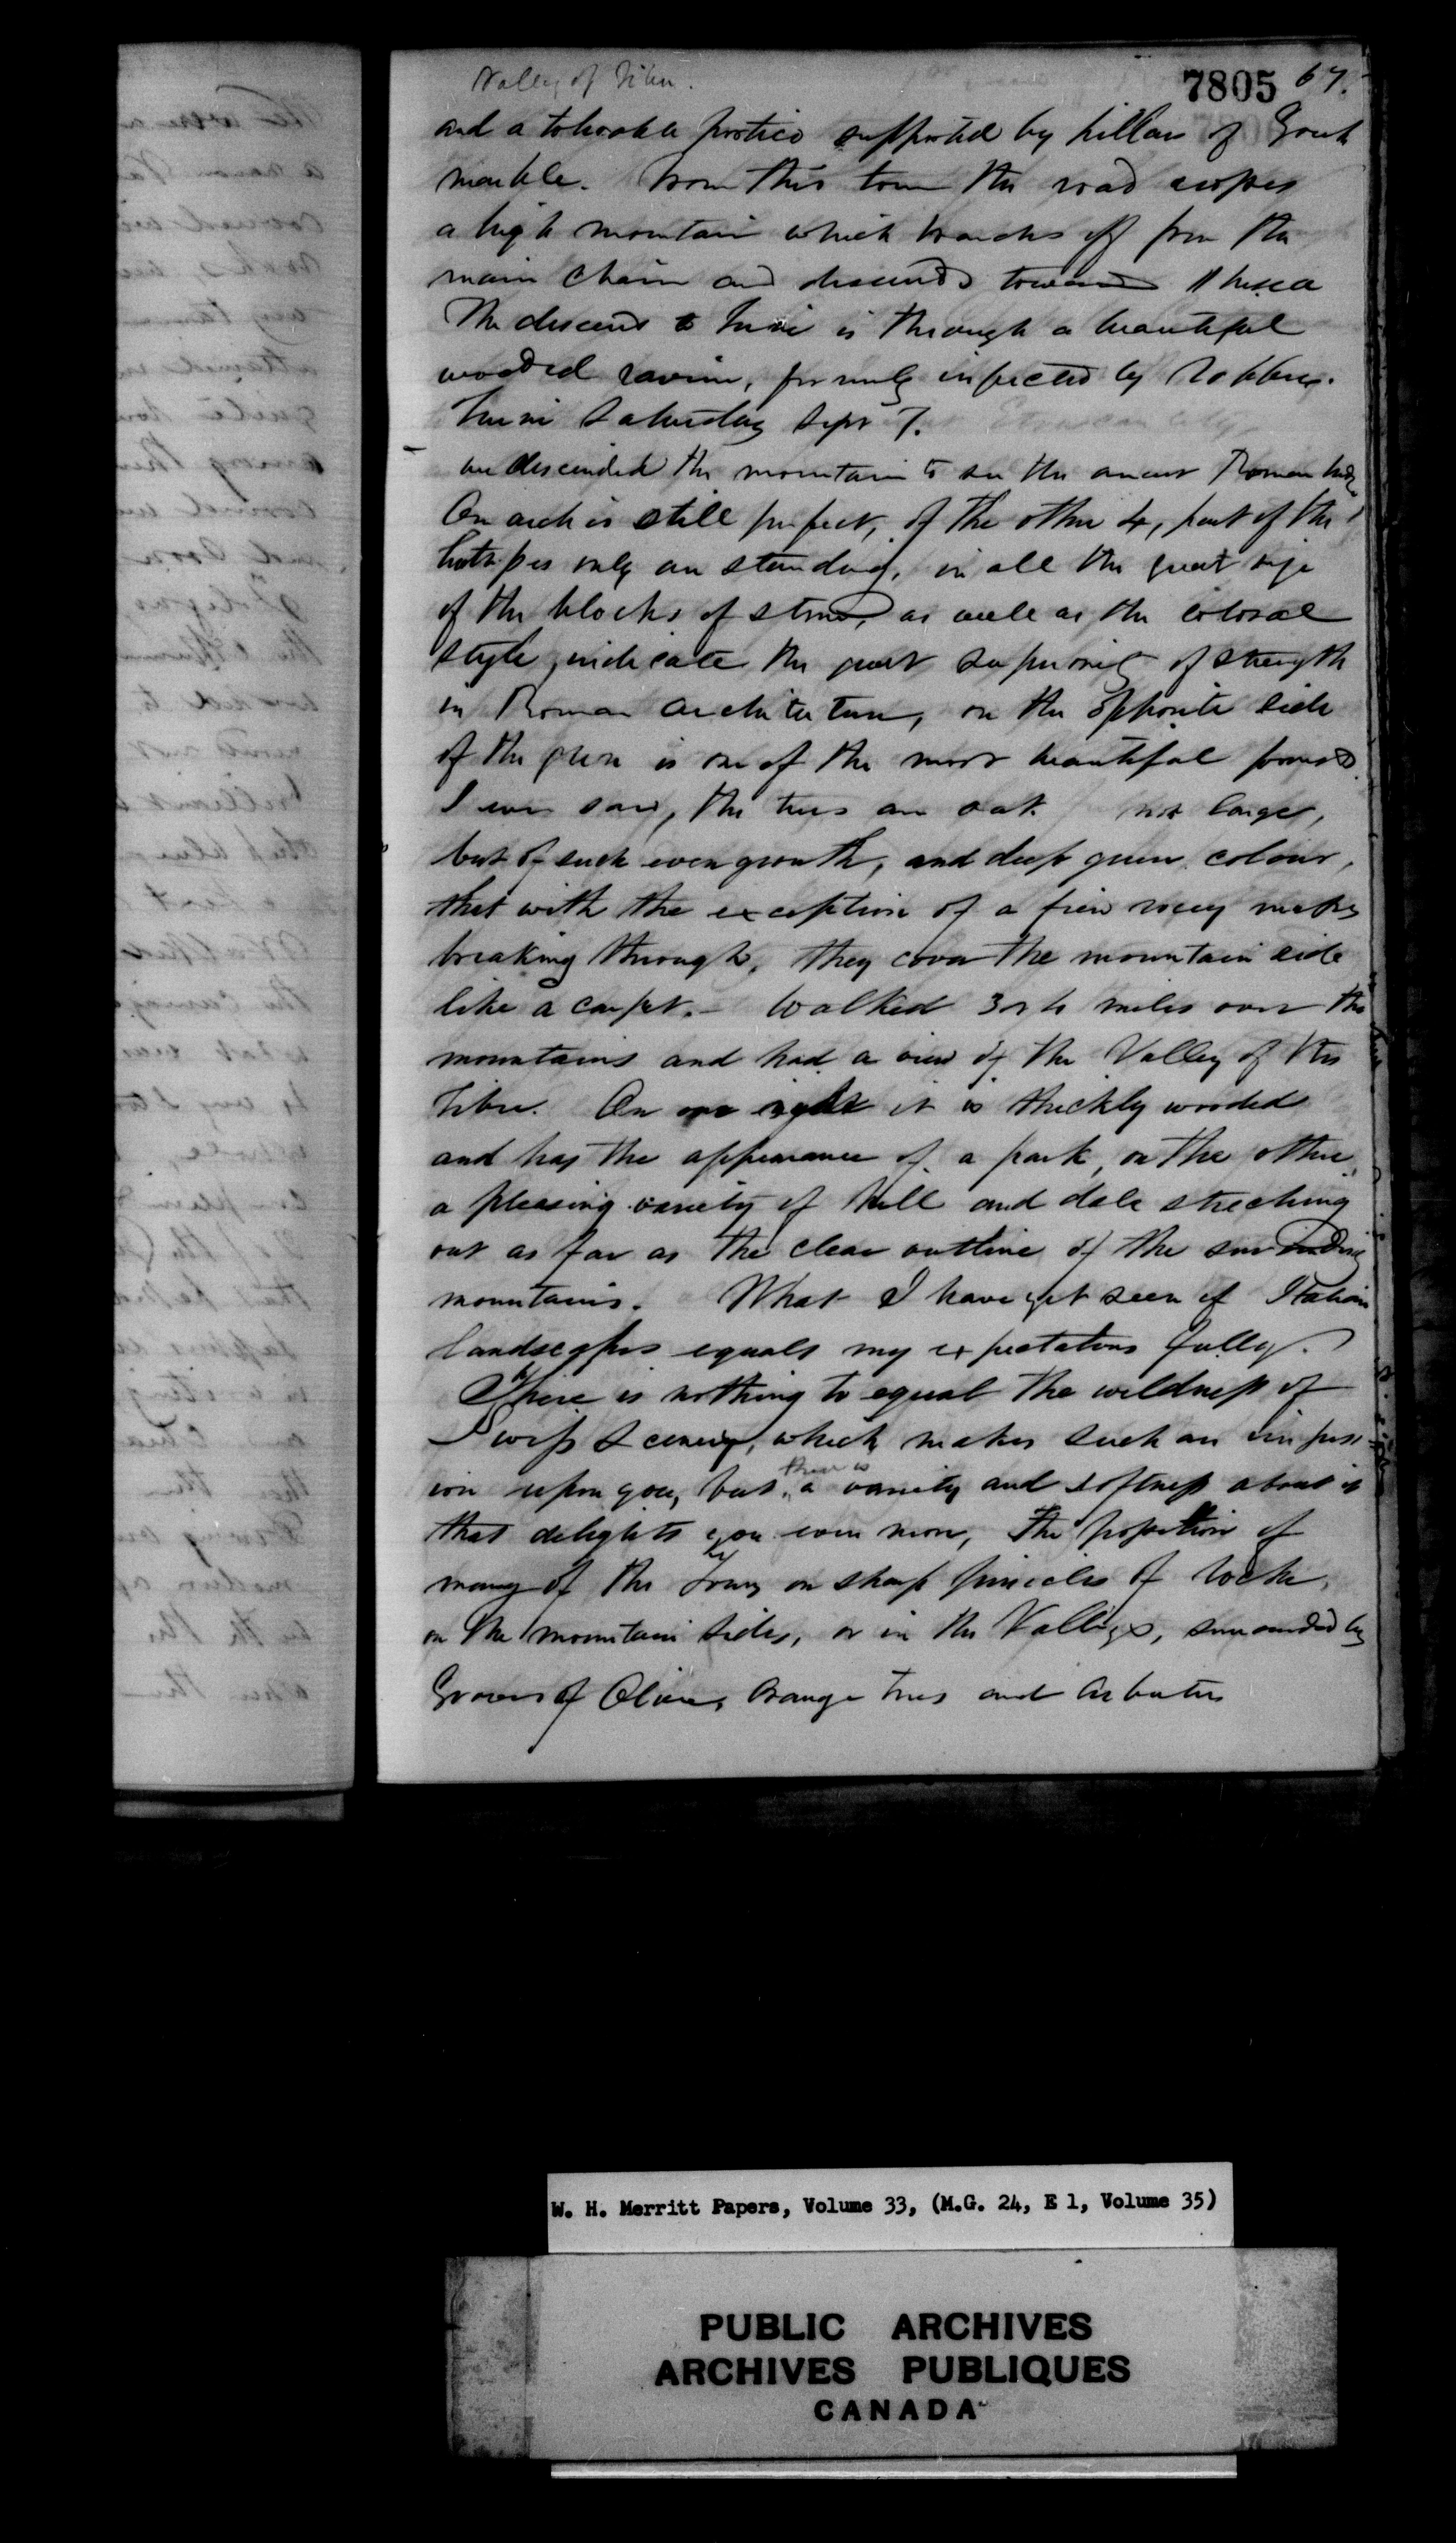 Valley of Tiber.
7805 67.
and a portico supported by pillars of Greek
marble. From this town the road crosses
a high mountain which branches off from the
main chain and descends towards
The descent to is through a beautiful
wooded ravine, formerly infested by robbers.
Saturday Sept 7.
we descended the mountain to see the ancient Roman
One arch is still perfect, of the other 4, part of the
only are standing, in all the great size
of the blocks of stone, as well as the colosal
style, indicate the great superiority of strength
in Roman architecture, on the opposite side
of the is one of the most beautiful forests
I ever saw, the trees are oak not large,
but of such even growth, and deep green colour,
that with the exception of a few
breaking through, they cover the mountain side
like a carpet. - Walked 3 or 4 miles over the
mountains and had a view of the Valley of the
Tibre. On one it is thickly wooded
and has the appearance of a park, on the other,
a pleasing variety of hill and dale streching
out as far as the clear outline of the
mountains. What I have yet seen of Italian
landscapes equals my expectations fully.
There is nothing to equal the wildness of
Swiss Scenery, which makes such an impress
ion upon you, but there is a variety and softness about it
that delights you even more, The position of
many of the on sharp pinicles of rocks,
on the mountain sides, or in the Valleys, surrounded by
Groves of Olives, Orange trees and Arbutus
W. H. Merritt Papers, Volume 33, (M.G. 24, E 1, Volume 35)
PUBLIC ARCHIVES
ARCHIVES PUBLIQUES
CANADA